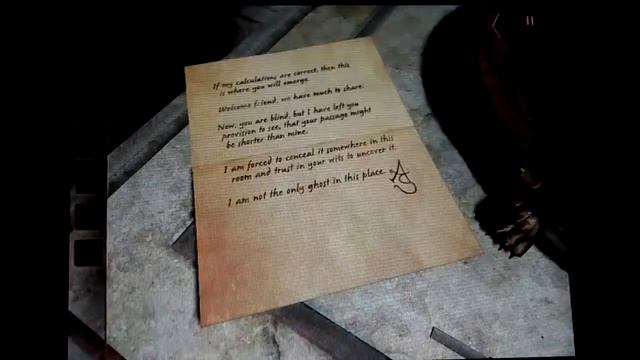 If my calculations are correct, then this
is where you will emerge.
Welcome friend, we have much to share.
Now, you are blind, but I have left you
provision to see, that your passage might
be shorter than mine.
I am forced to conceal it somewhere in this
room and trust in your wits to uncover it.
I am not the only ghost in this place.
AS